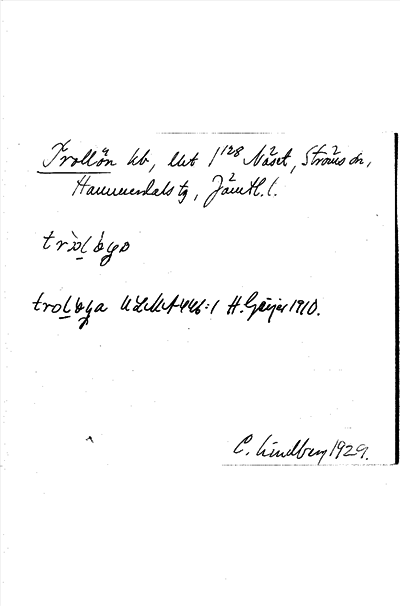 Trollön hb, lut 1¹²⁸ Näset, Ströms sn,
Hammerdals tg, Jämtl. l.
troløyo
troløya ULMA 446:1 H. Geijer 1910.
C. Lindberg 1929.